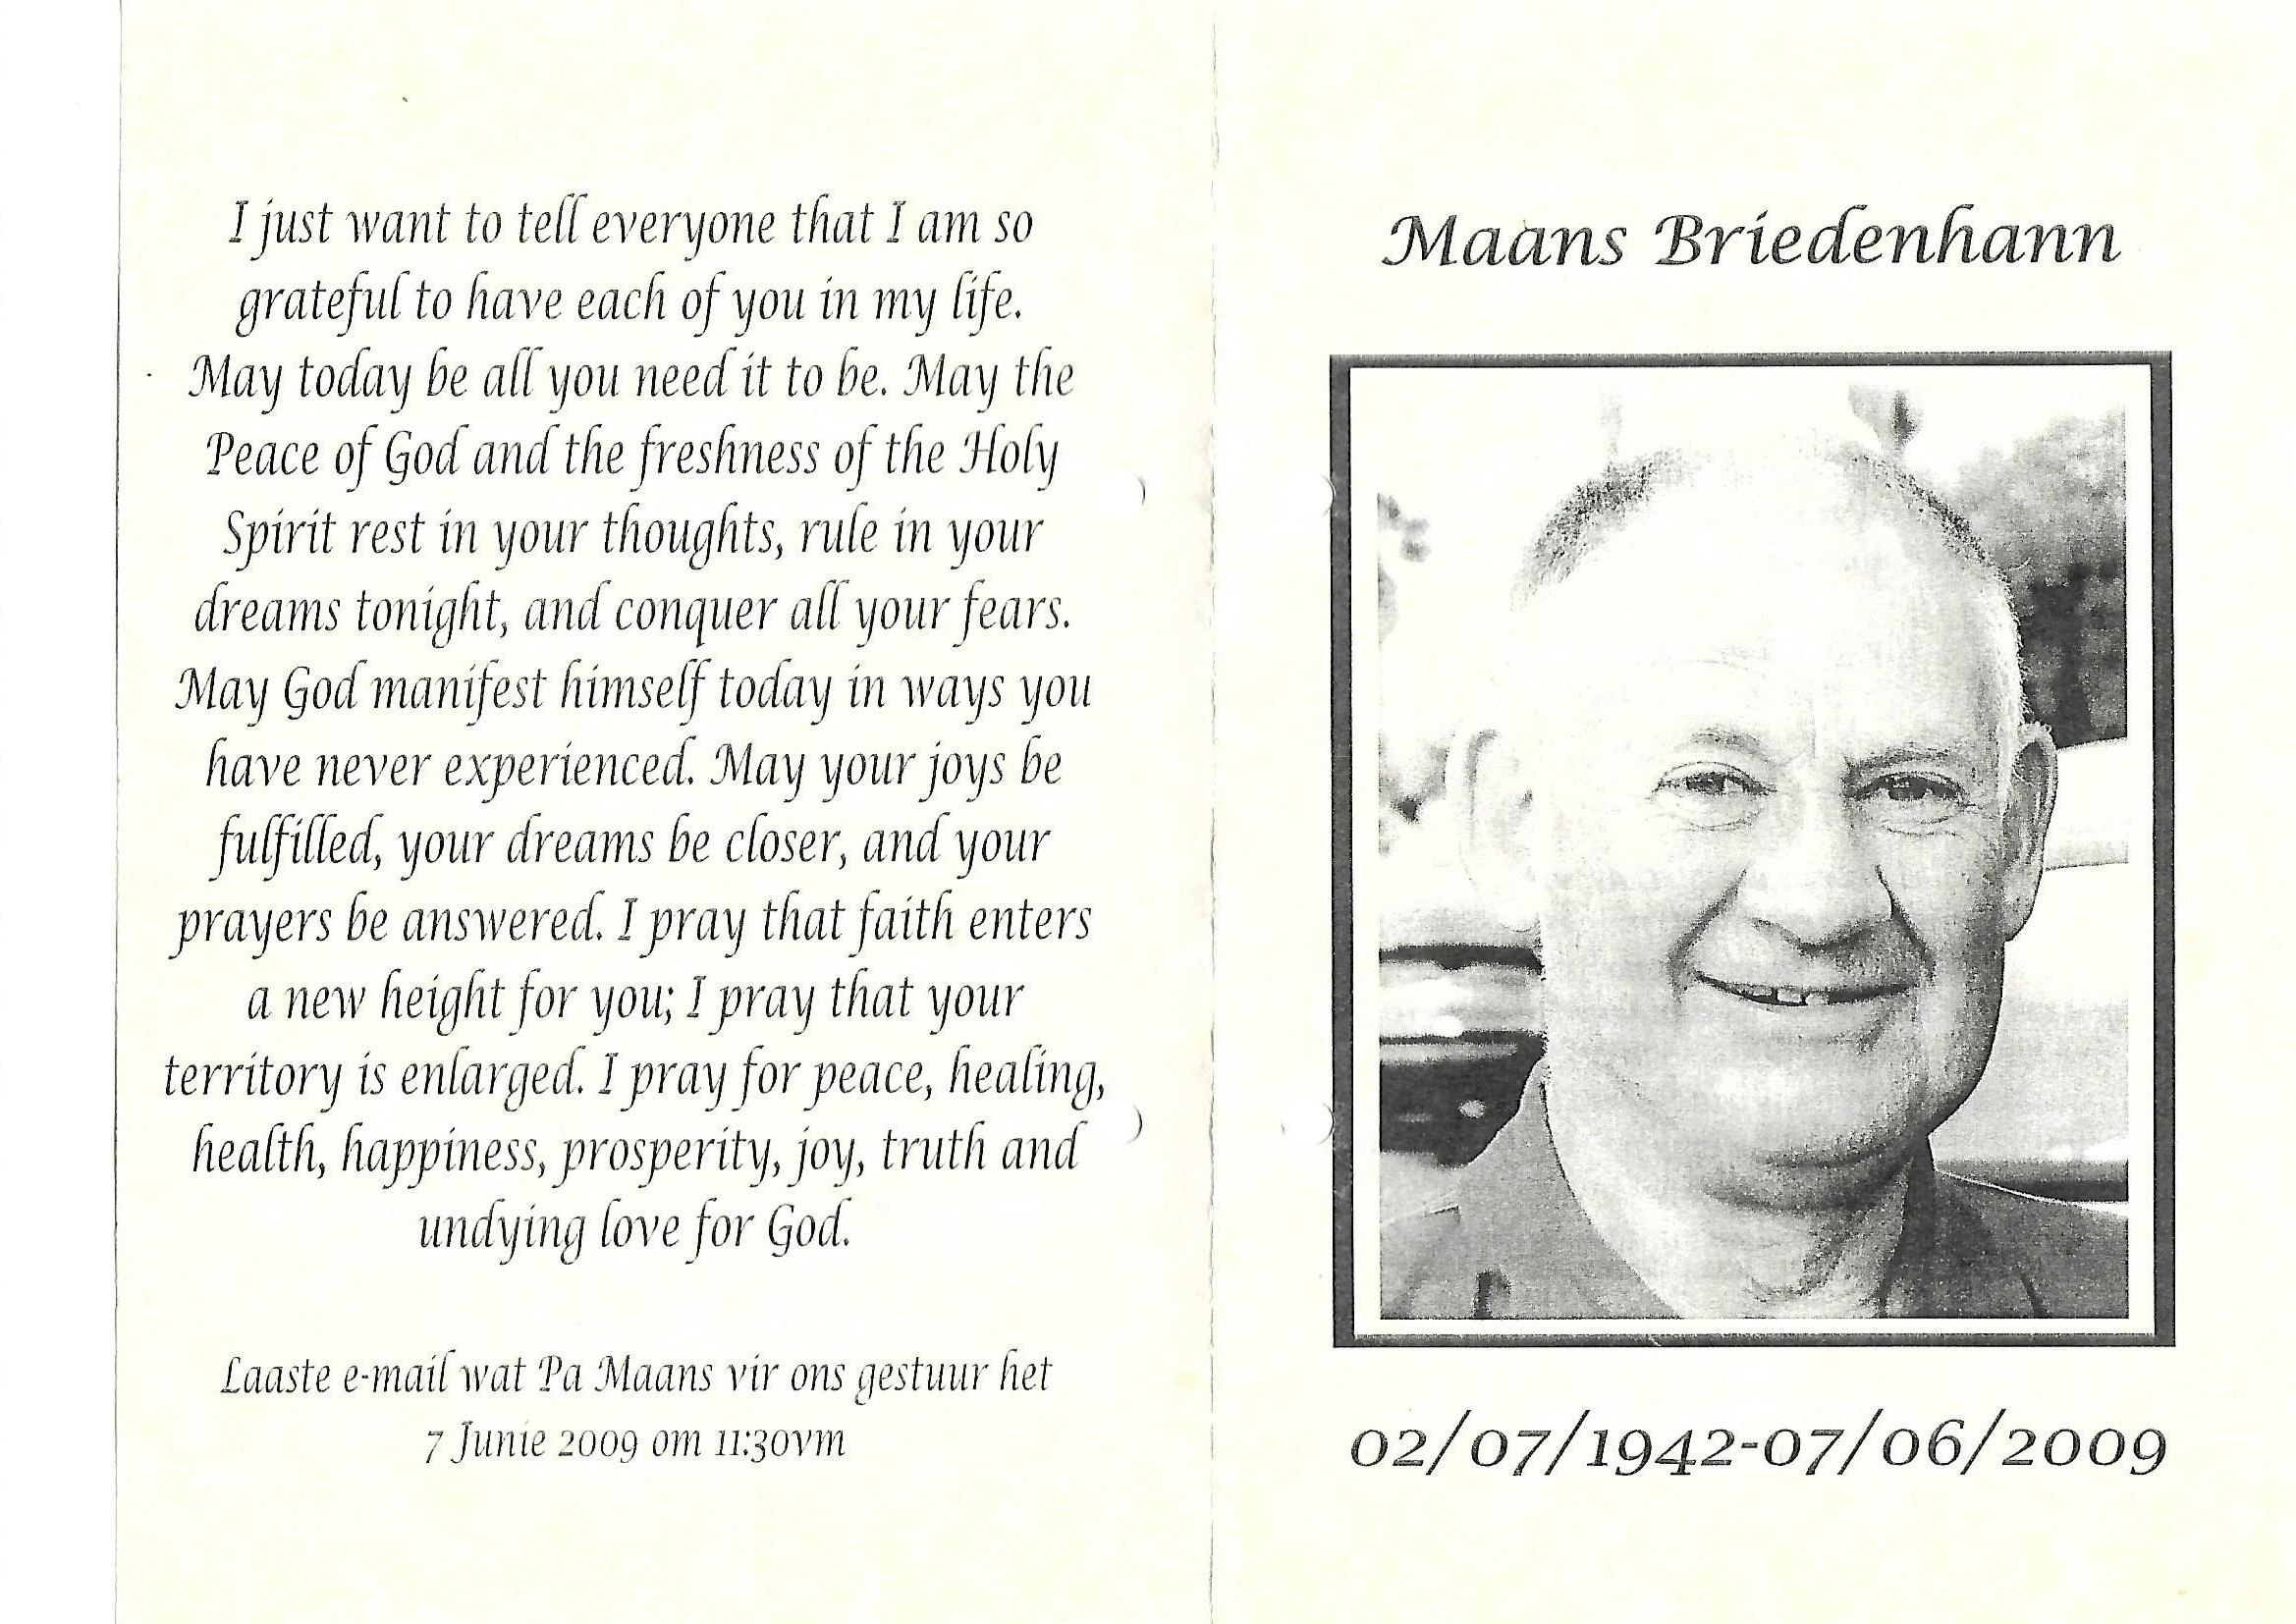 I just want to tell everyone that I am so
grateful to have each of you in my life.
May today be all you need it to be. May the
Peace of God and the freshness of the Holy
Spirit rest in your thoughts, rule in your
dreams tonight, and conquer all your fears.
May God manifest himself today in ways you
have never experienced. May your joys be
fulfilled, your dreams be closer, and your
prayers be answered. I pray that faith enters
a new height for you; I pray that your
territory is enlarged. I pray for peace, healing,
health, happiness, prosperity, joy, truth and
undying love for God.
Laaste e-mail wat Pa Maans vir ons gestuur het
7 Junie 2009 om 11:30vm
Maans Briedenhann
02/07/1942-07/06/2009